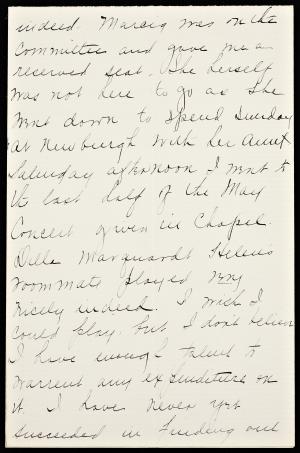 indeed. Marcia was on the
Committee and gave me a
reserved seat. She herself
was not here to go as she
went down to spend Sunday
at Newburgh with her Aunt
Saturday afternoon I went to
the last half of the May
Concert given in Chapel.
Della Marquardt Helen's
roommate played very
nicely indeed. I wish I
could play. but I don't believe
I have enough talent to
warrent any expenditure on
it. I have never yet
succeeded in finding out